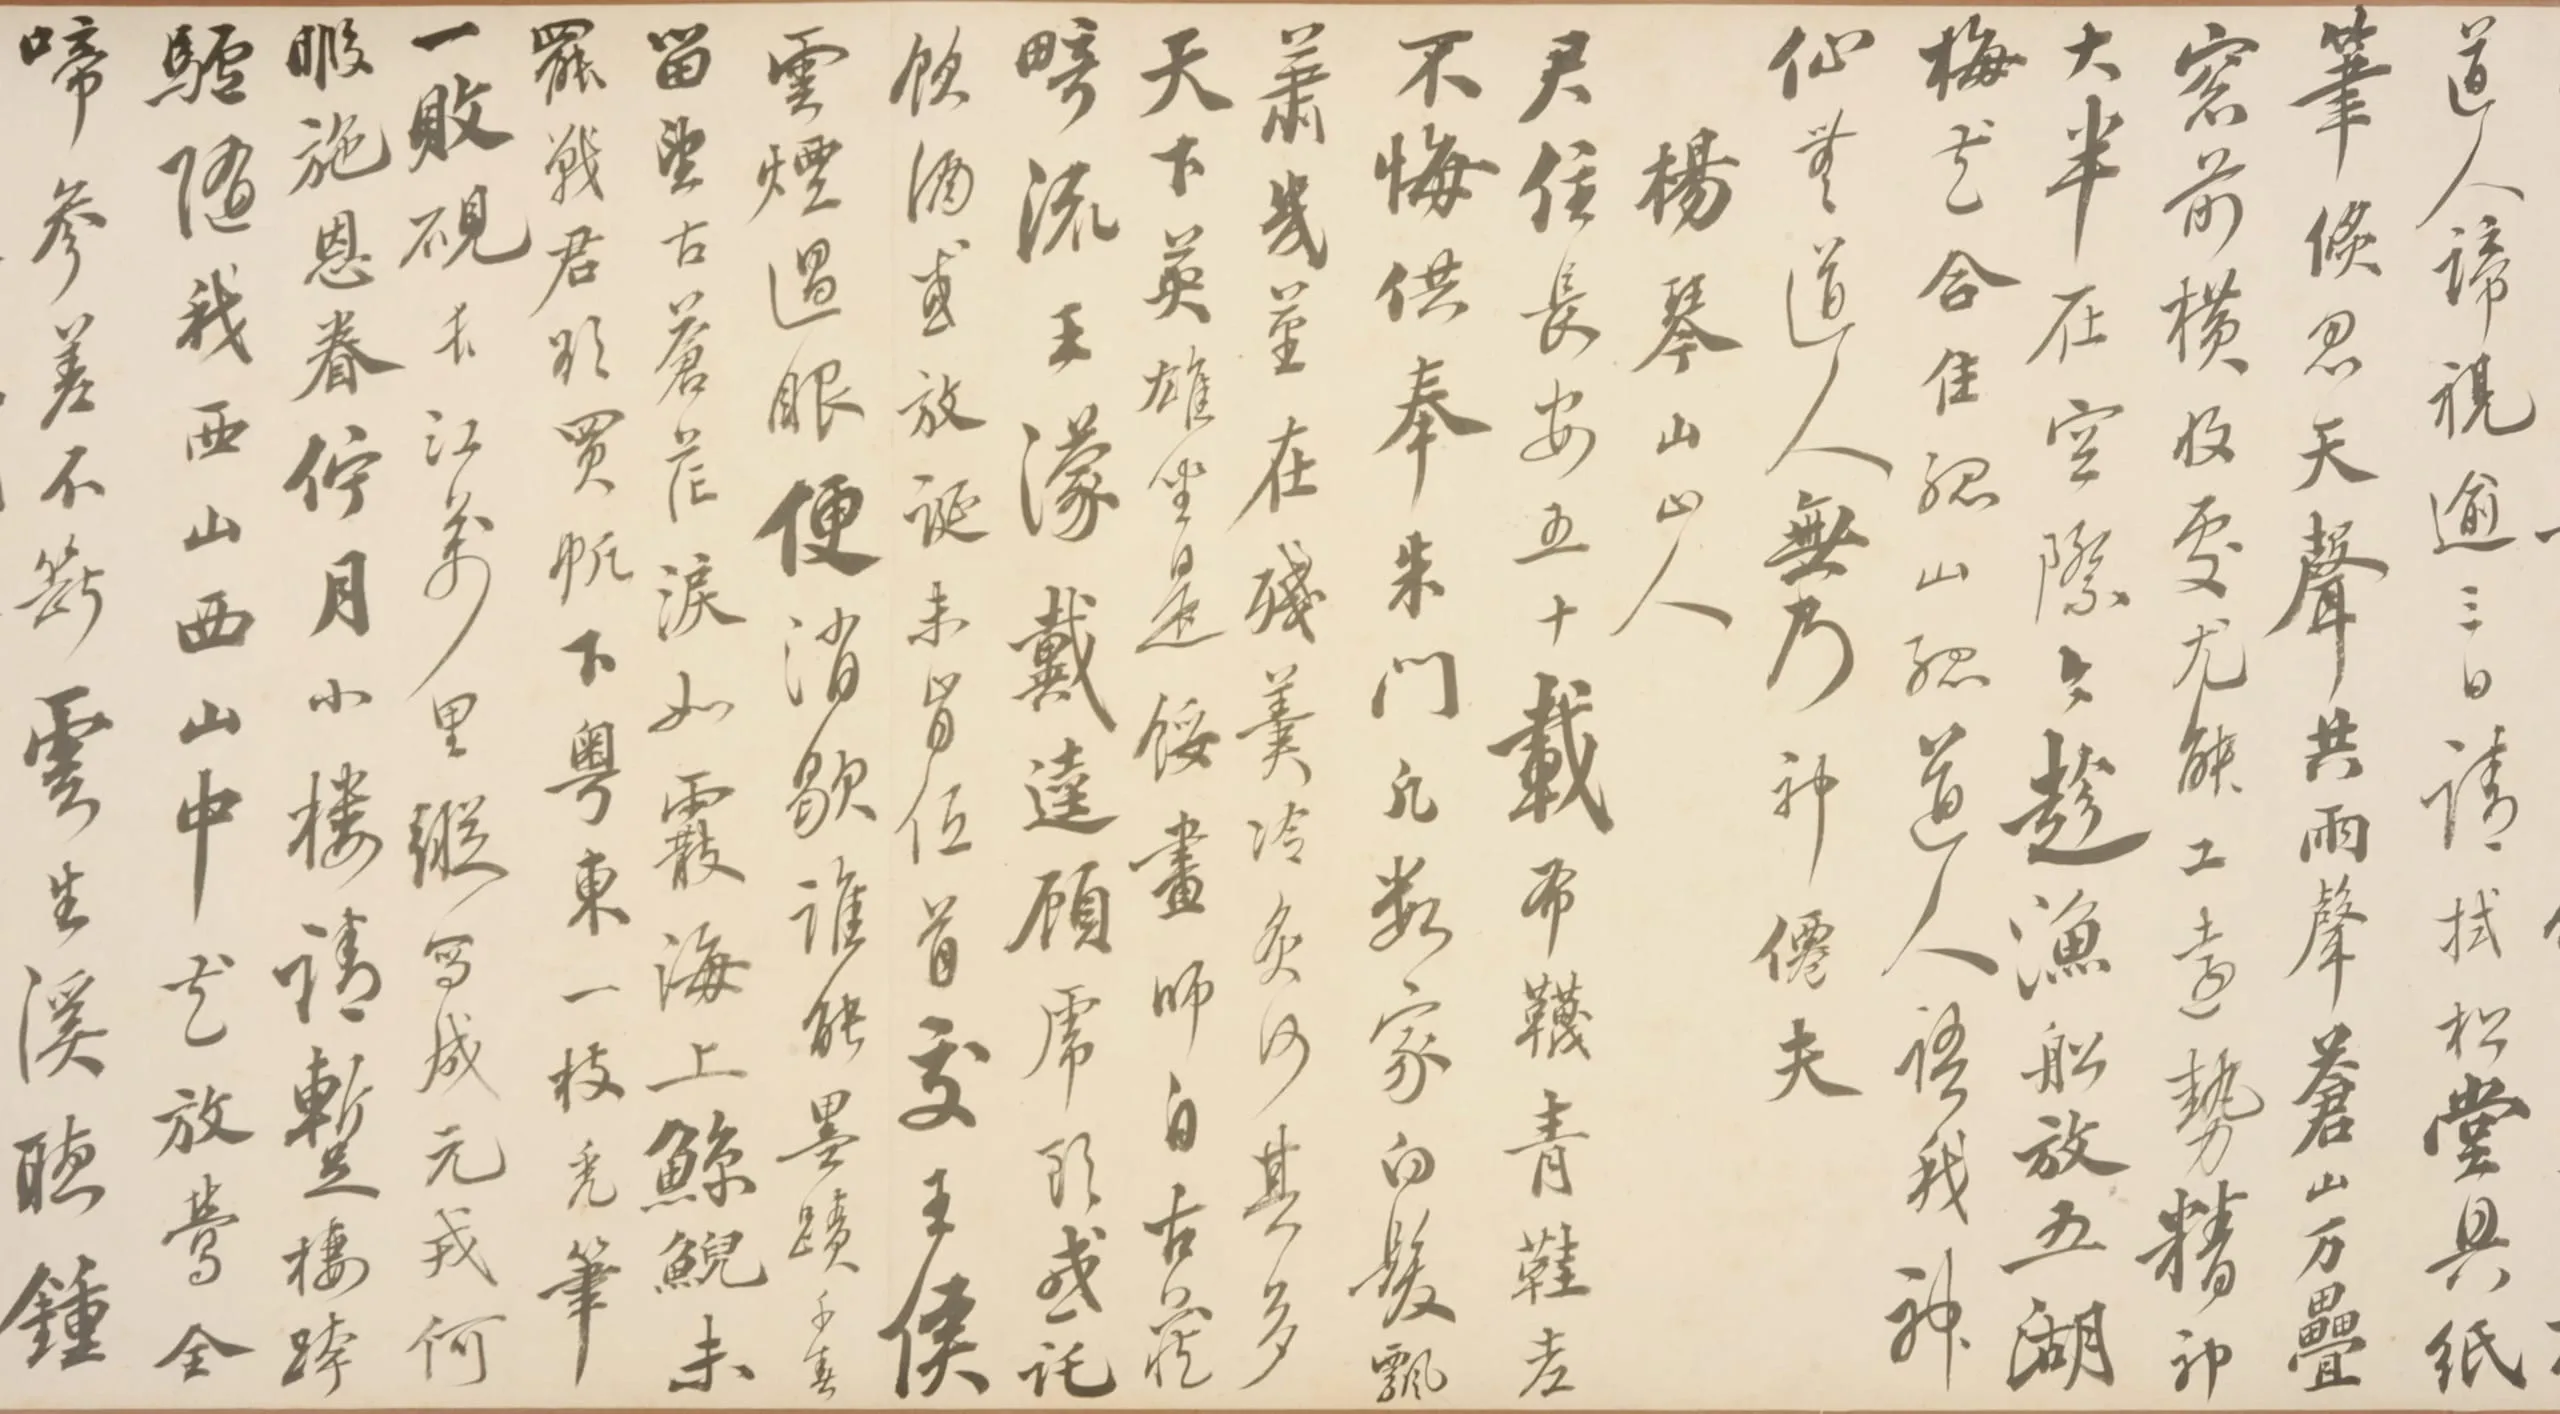 道人諦視逾三日請拭松堂具紙
筆倏忽天聲共雨聲蒼山万疊
窓前横收處尤能工遠勢精神
大半在空際今趁漁船放五湖
梅花合住孤山孤道人語我神
仙無道人無乃神僊夫
楊琴山山人
君住長安五十載布韈青鞋老
不悔供奉朱門凡數家白髮飄
蕭幾莖在殘羹冷炙何其多
天下英雄坐是餒畫師自古
疇流王濛戴逵顧虎頭或託
飲酒或放誕未肯低首交王侯
雲煙過眼便消歇誰能墨蹟千春
留望古蒼茫淚如霰海上鯨鯢未
罷戰君頭買帆下粵東一枝禿筆
一敗硯去江萬里縱寫成元戎何
暇施恩眷佇月小樓請暫棲跨
驢隨我西山西山中花放鶯全
啼參差不斷雲生溪聽鍾